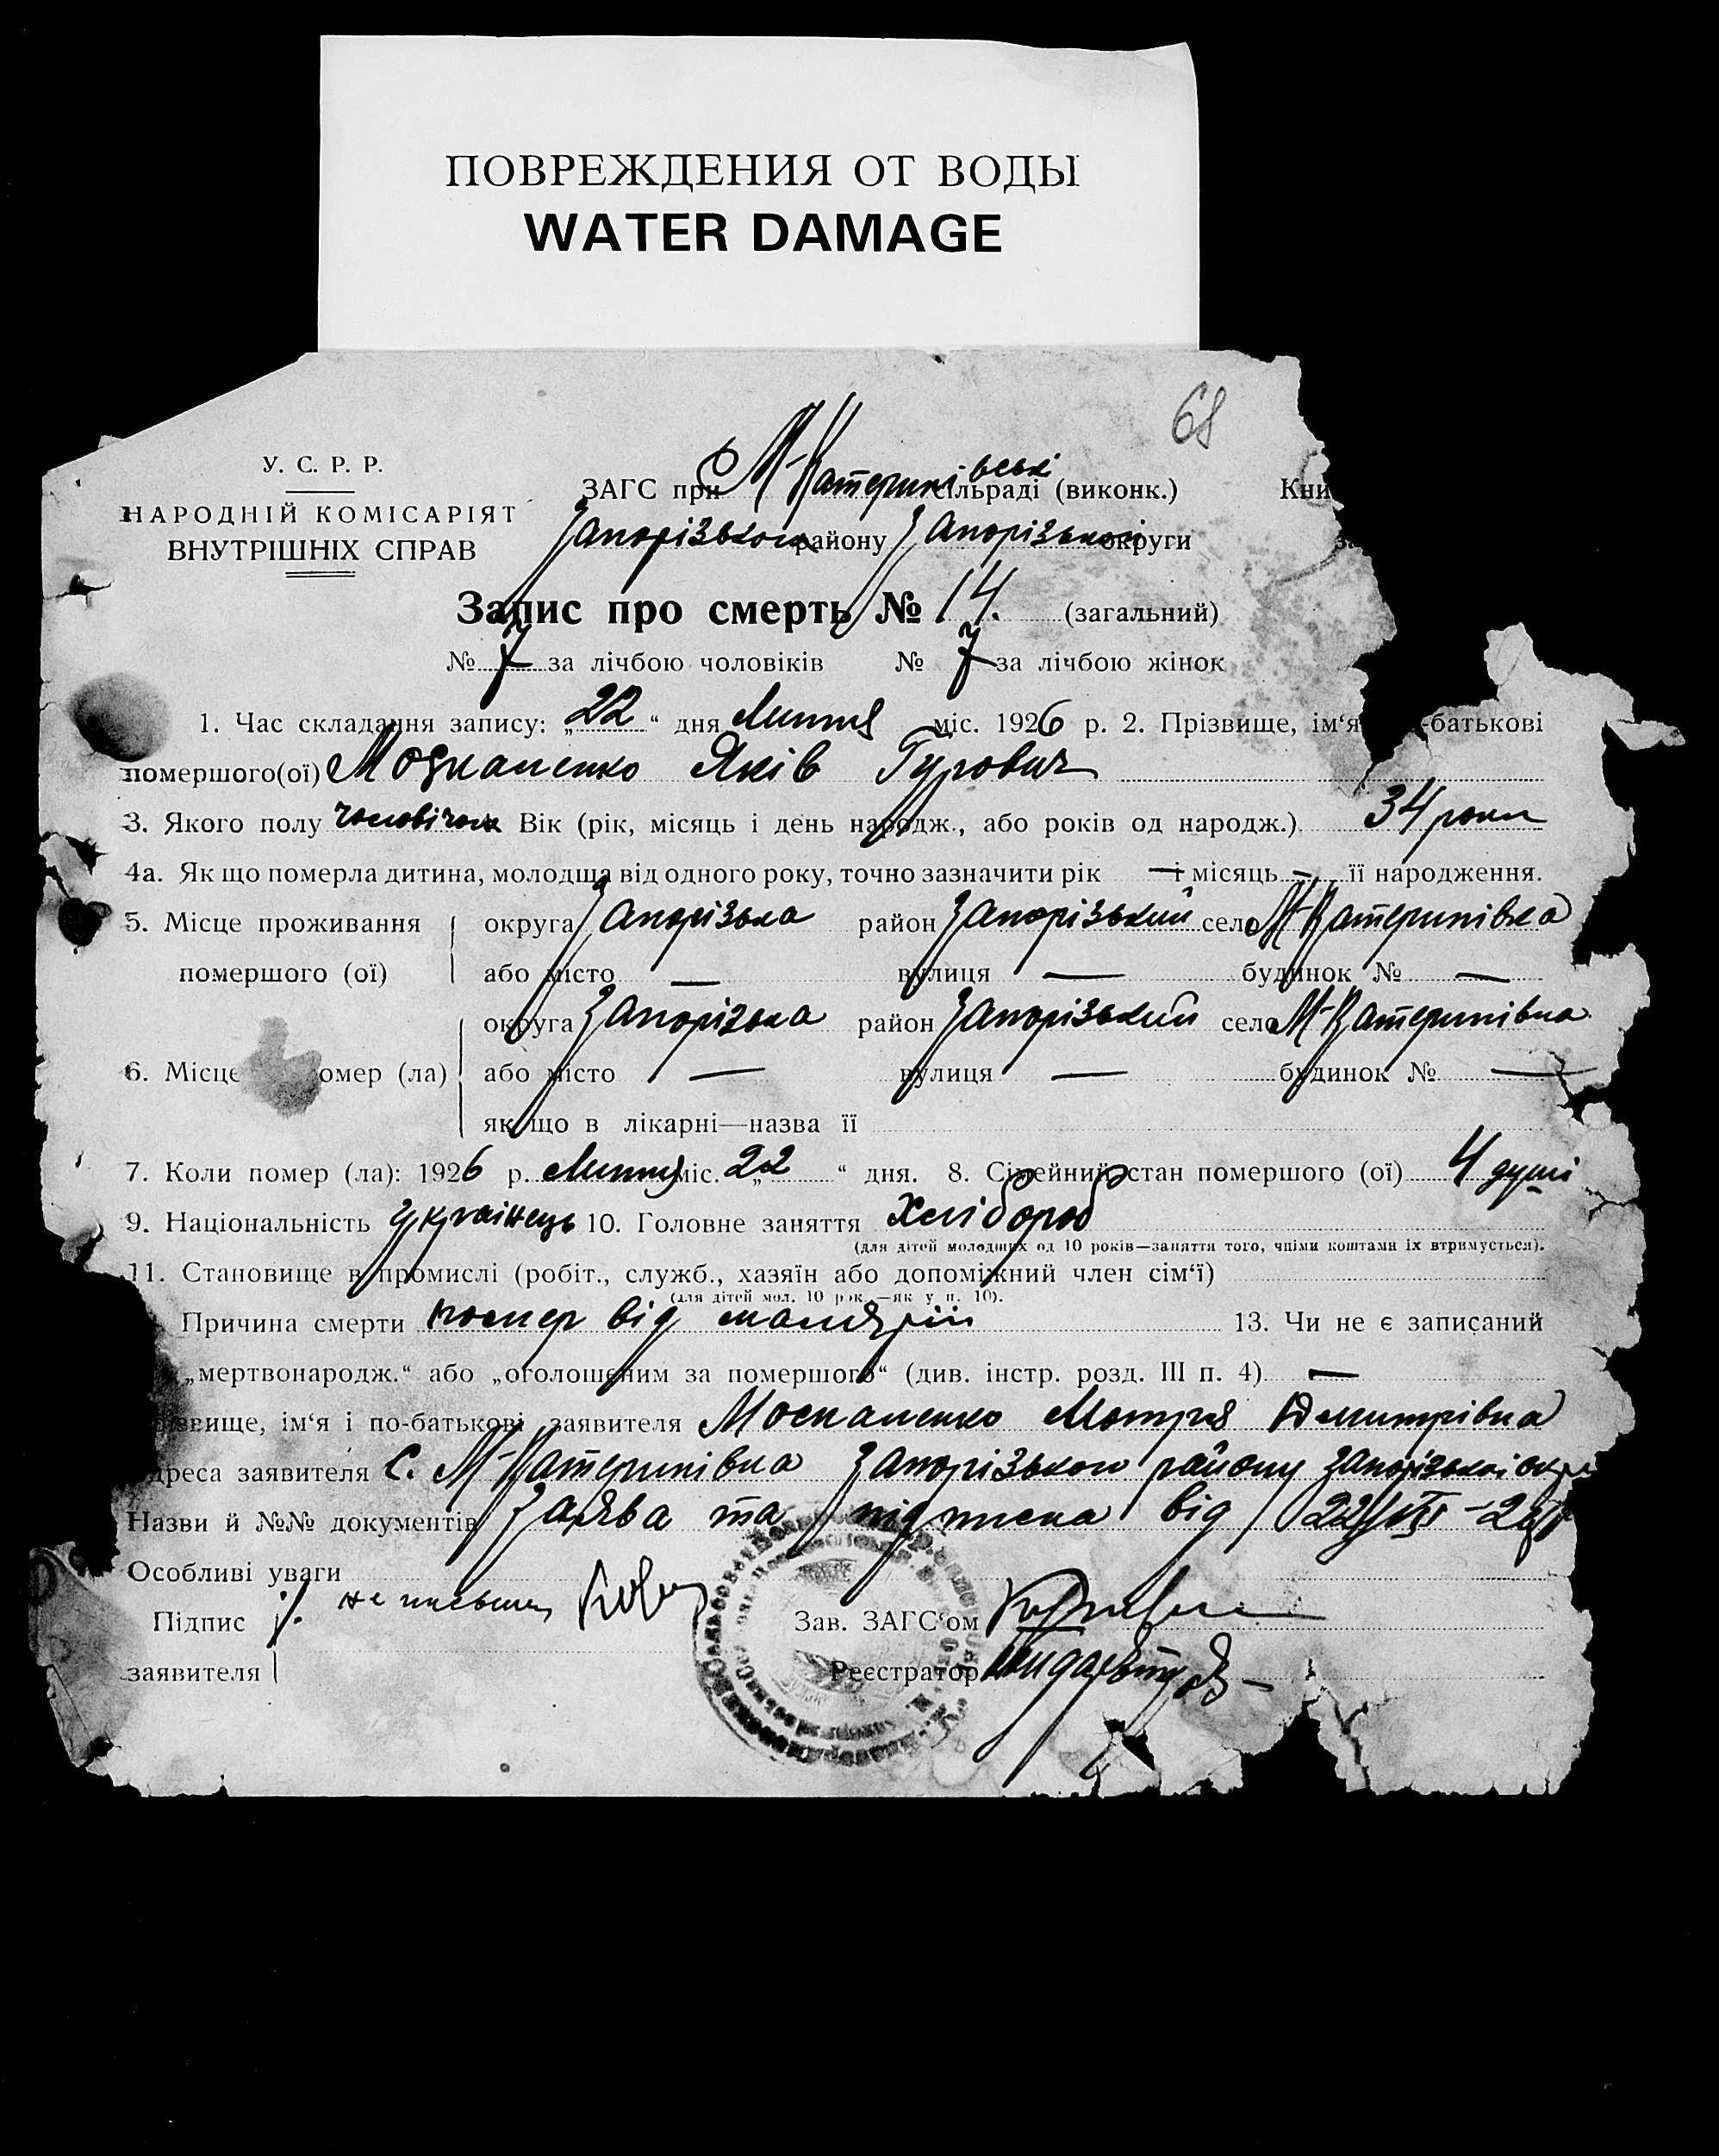 ПОВРЕЖДЕНИЯ ОТ ВОДЫ
WATER DAMAGE
68
У. С. Р. Р.
НАРОДНІЙ КОМІСАРІЯТ
ВНУТРІШНІХ СПРАВ
ЗАГС при М-Катеринівській сільраді (виконк.) Кни
Запорізького району Запорізької округи
Запис про смерть № 14. (загальний)
№ 7 за лічбою чоловіків № 7 за лічбою жінок
1. Час складання запису: „22“ дня Липня міс. 1926 р. 2. Прізвище, ім‘я -батькові
помершого(ої) Москаленко Яків Гурович
3. Якого полу чоловічого Вік (рік, місяць і день народж., або років од народж.) 34 роки
4а. Як що померла дитина, молодша від одного року, точно зазначити рік — і місяць — її народження.
5. Місце проживання округа Запорізька район Запорізький село М-Катеринівка
помершого (ої) або місто — вулиця — будинок № —
округа Запорізька район Запорізький село М-Катеринівка
6. Місце помер (ла) або місто — вулиця — будинок № —
як що в лікарні—назва її
7. Коли помер (ла): 1926 р. Липня міс. „22“ дня. 8. Сімейний стан помершого (ої) 4 душі
9. Національність Українець 10. Головне заняття Хлібороб
(для дітей молодших од 10 років—заняття того, чиїми коштами їх втримується).
11. Становище в промислі (робіт., служб., хазяїн або допоміжний член сім‘ї)
(для дітей мол. 10 рок.—як у п. 10).
Причина смерти помер від малярії 13. Чи не є записаний
„мертвонародж.“ або „оголошеним за помершого“ (див. інстр. розд. III п. 4) —
ізвище, ім‘я і по-батькові заявителя Москаленко Мотря Дмитрівна
дреса заявителя с. М-Катеринівка Запорізького району Запорізької окр
Назви й №№ документів Заява та підписка від 22/VII-26
Особливі уваги
Підпис не письмен
Зав. ЗАГС‘ом
заявителя
Реєстратор